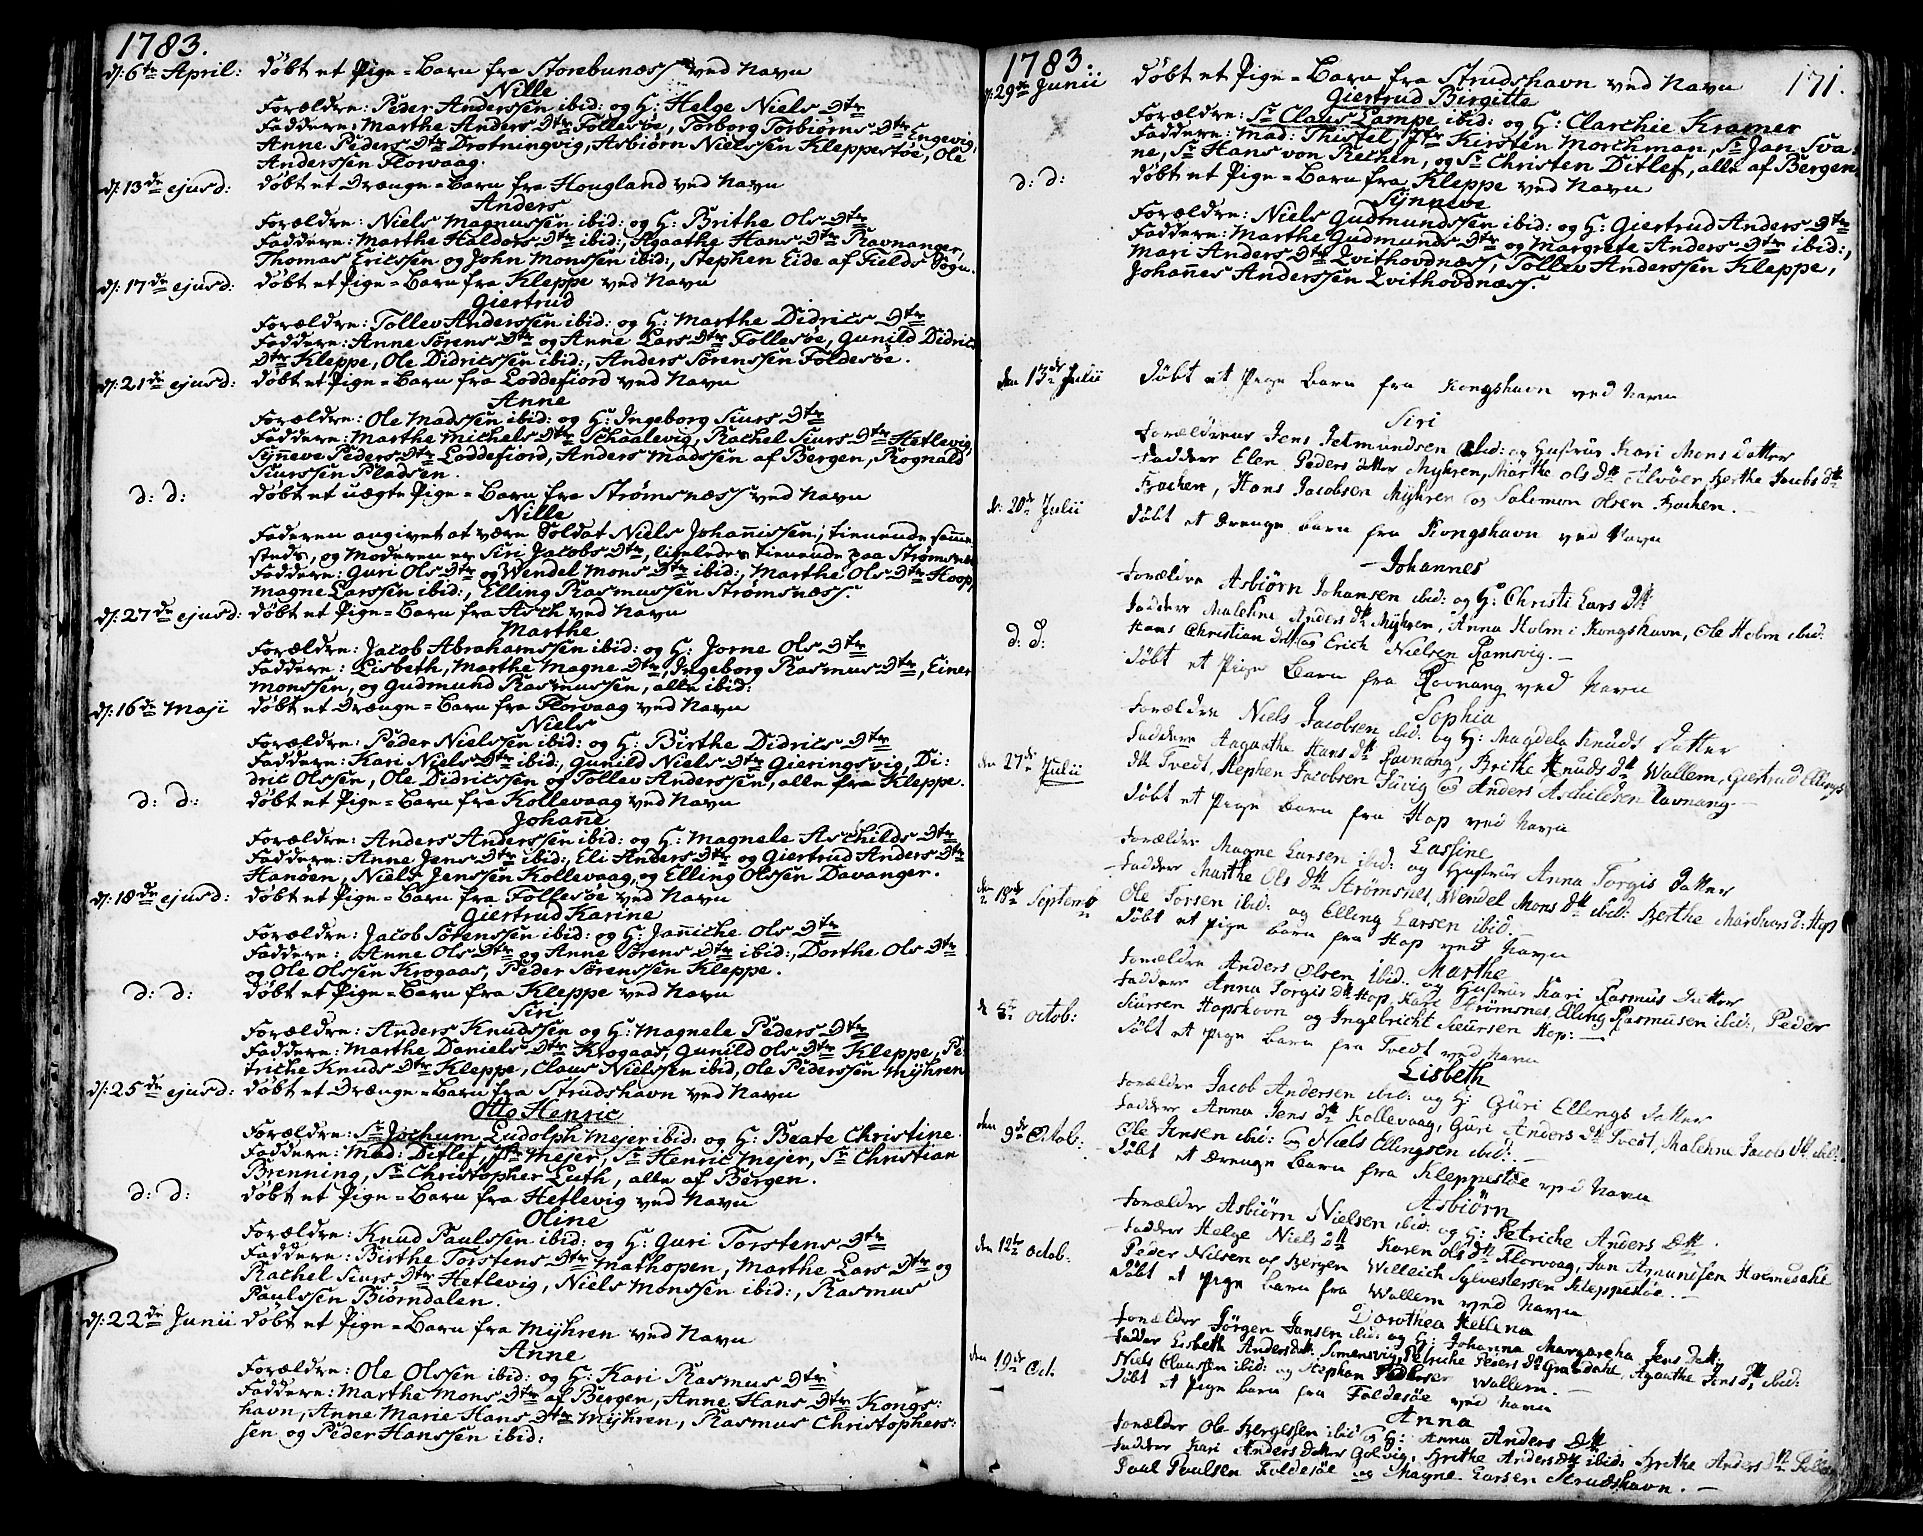 1783.
d: 6te April: døbt et Pige=Barn fra Storebunæss ved Navn
Nille
Forældre: Peder Anderssen ibid: og H: Helge Niels Dtr
Faddere: Marthe Anders Dtr Follesøe, Torborg Torbiørns Dtr Engevig,
Anne Peders Dtr Drotningvig, Asbiørn Nielssen Kleppestøe, Ole
Anderssen Florvaag.
d: 13de ejusd: døbt et Drænge=Barn fra Hougland ved Navn
Anders
Forældre: Niels Magnussen ibid: og H: Brithe Ols Dtr
Faddere: Marthe Haldors Dtr ibid:, Agaathe Hans Dtr Ravnanger,
Thomas Ericssen og John Monssen ibid:, Stephen Eide af Fields Sogn.
d: 17de ejusd: døbt et Pige=Barn fra Kleppe ved Navn
Giertrud
Forældre: Tollev Anderssen ibid: og H: Marthe Didrics Dtr
Faddere: Anne Sørens Dtr og Anne Lars Dtr Follesøe, Gunild Didrics
Dtr Kleppe, Ole Didricssen ibid:, Anders Sørenssen Foldesøe.
d: 21de ejusd: døbt et Pige=Barn fra Loddefiord ved Navn
Anne
Forældre: Ole Madssen ibid: og H: Ingeborg Siurs Dtr
Faddere: Marthe Michels Dtr Schaalevig, Rachel Siurs Dtr Hetlevig,
Synneve Peders Dtr Loddefiord, Anders Madssen af Bergen, Rognald
Siurssen Pladsen.
d: d: døbt et uægte Pige=Barn fra Strømsnæss ved Navn
Nille
Faderen angivet at være Soldat Niels Johannissen, tienende samme
steds, og Moderen er Siri Jacobs Dtr, ligeledes tienende paa Strømsnæs
Faddere: Guri Ols Dtr og Wendel Mons Dtr ibid:, Marthe Ols Dtr Hoop
Magne Larssen ibid:, Elling Rasmussen Strømsnæss.
d: 27de ejusd: døbt et Pige=Barn fra Asch ved Navn
Marthe
Forældre: Jacob Abrahamssen ibid: og H: Jorne Ols Dtr
Faddere: Lisbeth, Marthe Magne Dtr, Ingeborg Rasmus Dtr, Einer
Monssen, og Gudmund Rasmussen, alle ibid:
d: 16de Maji døbt et Drænge=Barn fra Florvaag ved Navn
Niels
Forældre: Peder Nielssen ibid: og H: Birthe Didrics Dtr
Faddere: Kari Niels Dtr ibid:, Gunild Niels Dtr Gieringsvig, Di-
dric Olssen, Ole Didricssen og Tollev Anderssen, alle fra Kleppe.
d: d: døbt et Pige=Barn fra Kollevaag ved Navn
Johane
Forældre: Anders Anderssen ibid: og H: Magnele Aschilds Dtr
Faddere: Anne Jens Dtr ibid:, Eli Anders Dtr og Giertrud Anders Dtr
Hanøen, Niels Jenssen Kollevaag, og Elling Olssen Davanger.
d: 18de ejusd: døbt et Pige=Barn fra Follesøe ved Navn
Giertrud Karine
Forældre: Jacob Sørenssen ibid: og H: Janniche Ols Dtr
Faddere: Anne Ols Dtr og Anne Sørens Dtr ibid:, Dorthe Ols Dtr
og Ole Olssen Krogaas, Peder Sørenssen Kleppe.
d: d: døbt et Pige=Barn fra Kleppe ved Navn
Siri
Forældre: Anders Knudssen og H: Magnele Peders Dtr
Faddere: Marthe Daniels Dtr Krogaas, Gunild Ols Dtr Kleppe, Pe-
triche Knuds Dtr Kleppe, Claus Nielssen ibid, Ole Pederssen Myhren
d: 25de ejusd: døbt et Drænge=Barn fra Strudshavn ved Navn
Otto Henric
Forældre: Sr Jochum Ludolph Mejer ibid: og H: Beate Christine.
Faddere: Mad: Ditlef, Jfr Mejer, Sr Henric Mejer, Sr Christian
Brenning, Sr Christopher Luth, alle af Bergen.
d: d: døbt et Pige=Barn fra Hetlevig ved Navn
Oline
Forældre: Knud Paulssen ibid: og H: Guri Torstens Dtr
Faddere: Birthe Torstens Dtr Mathopen, Marthe Lars Dtr og
Rachel Siurs Dtr Hetlevig, Niels Monssen ibid:, Rasmus
Paulssen Biørndalen.
d: 22de Junii døbt et Pige=Barn fra Myhren ved Navn
Anne
Forældre: Ole Olssen ibid: og H: Kari Rasmus Dtr
Faddere: Marthe Mons Dtr af Bergen, Anne Hans Dtr Kongs-
havn, Anne Marie Hans Dtr Myhren, Rasmus Christophers-
sen og Peder Hanssen ibid:
1783.
171.
d: 29de Junii døbt et Pige=Barn fra Strudshavn ved Navn
Giertrud Birgitte
Forældre: Sr Claus Lampe ibid: og H: Clarchie Kramer
Faddere: Mad: Thistel, Jfr Kirsten Morchman, Sr Jan Sva-
ne, Sr Hans von Rechen, og Sr Christen Ditlef, alle af Bergen,
d: d: døbt et Pige=Barn fra Kleppe ved Navn
Synneve
Forældre: Niels Gudmundssen ibid: og H: Giertrud Anders Dtr
Faddere: Marthe Gudmunds Dtr og Margrete Anders Dtr ibid:,
Mari Anders Dtr Qvithovdnæss, Tollev Anderssen Kleppe,
Johannes Anderssen Qvithovdnæss.
den 13de Julii døbt et Pige barn fra Kongshavn ved Navn
Siri
Forældrene Jens Jetmundsen ibid: og Hustrue Kari Mons datter
Faddere Elen Peders datter Myhren, Marthe Ols Dtt Tilvøer, Berthe Jacobs Dtt
Frochen, Hans Jacobsen Myhren og Salomon Olsen Frochen.
d: 20de Julii døbt et drenge barn fra Kongshavn ved Navn
Johannes
Forældre Asbiørn Johansen ibid: og H: Christi Lars Dtt
Faddere Malehne Anders Dtt Myhren, Anna Holm i Kongshavn, Ole Holm ibid:
Hans Christian og Erich Nielsen Ramsvig.
d: d: døbt et Pige Barn fra Ravnang ved Navn
Sophia
Forældre Niels Jacobsen ibid: og H: Magdela Knuds Datter
Faddere Aagaathe Hans Dtt Ravnang, Brithe Knuds Dtt Wallem, Giertrud Ellings
Dtt Tvedt, Stephen Jacobsen og Anders Aschildsen Ravnang.
den 27de Julii døbt et Pige barn fra Hop ved Navn
Lassine
Forældre Magne Larsen ibid: og Hustrue Anna Torgis Datter
Faddere Marthe Ols Dtt Strømsnes, Wendel Mons Dtt ibid: Berthe D: Hop
Ole Torsen ibid: og Elling Larsen ibid.
den 18de Septemb døbt et Pige barn fra Hop ved Navn
Marthe
Forældre Anders Olsen ibid. og Hustrue Kari Rasmus Datter
Faddere Anna Torgis Dtt Hop, Kari Strømsnes, Elling Rasmusen ibid:, Peder
Siursen Hopshovn og Ingebricht Siursen Hop:
d 5te Octob: døbt et Pige Barn fra Tvedt ved Navn
Lisbeth
Forældre Jacob Andersen ibid: og H: Guri Ellings Datter
Faddere Anna Jens Dtt Kollevaag, Guri Anders Dtt Tvedt, Malehna Jacobs Dtt ibid:
Ole Jensen ibid: og Niels Ellingsen ibid:
den 9de Octob: døbt et drenge Barn fra Kleppestøe ved Navn
Asbiørn
Forældre Asbiørn Nielsen ibid: og H: Petriche Anders Dtt.
Faddere Helge Niels Dtt Karen Ols Dtt Florvaag, Jan Amunisen Holmedahl
Peder Nilsen af Bergen Willeich Sylvestersen Kleppestøe.
den 12te Octob. døbt et Pige barn fra Wallem ved Navn
Dorothea Hellena
Forældre Jørgen Jansen ibid: og H: Johanna Margaretha Jens Datt:
Fadder Lisbeth Anders Dtt. Simensvig, Petriche Peders Dtt Gravdahl, Agaathe Jens Dtt ibid:
Niels Claussen ibid: og Stephan Pedersen Wallem.
den 19de Oct. døbt et Pige barn fra Foldesøe ved Navn
Anna
Forældre Ole Bergessen ibid og H: Anna Anders Dtt
Faddere Kari Anders datter Golvig, Brithe Anders Dtt ibid: Brithe Anders Dtt
Poul Poulsen Foldesøe og Magne Larsen Strudshavn.